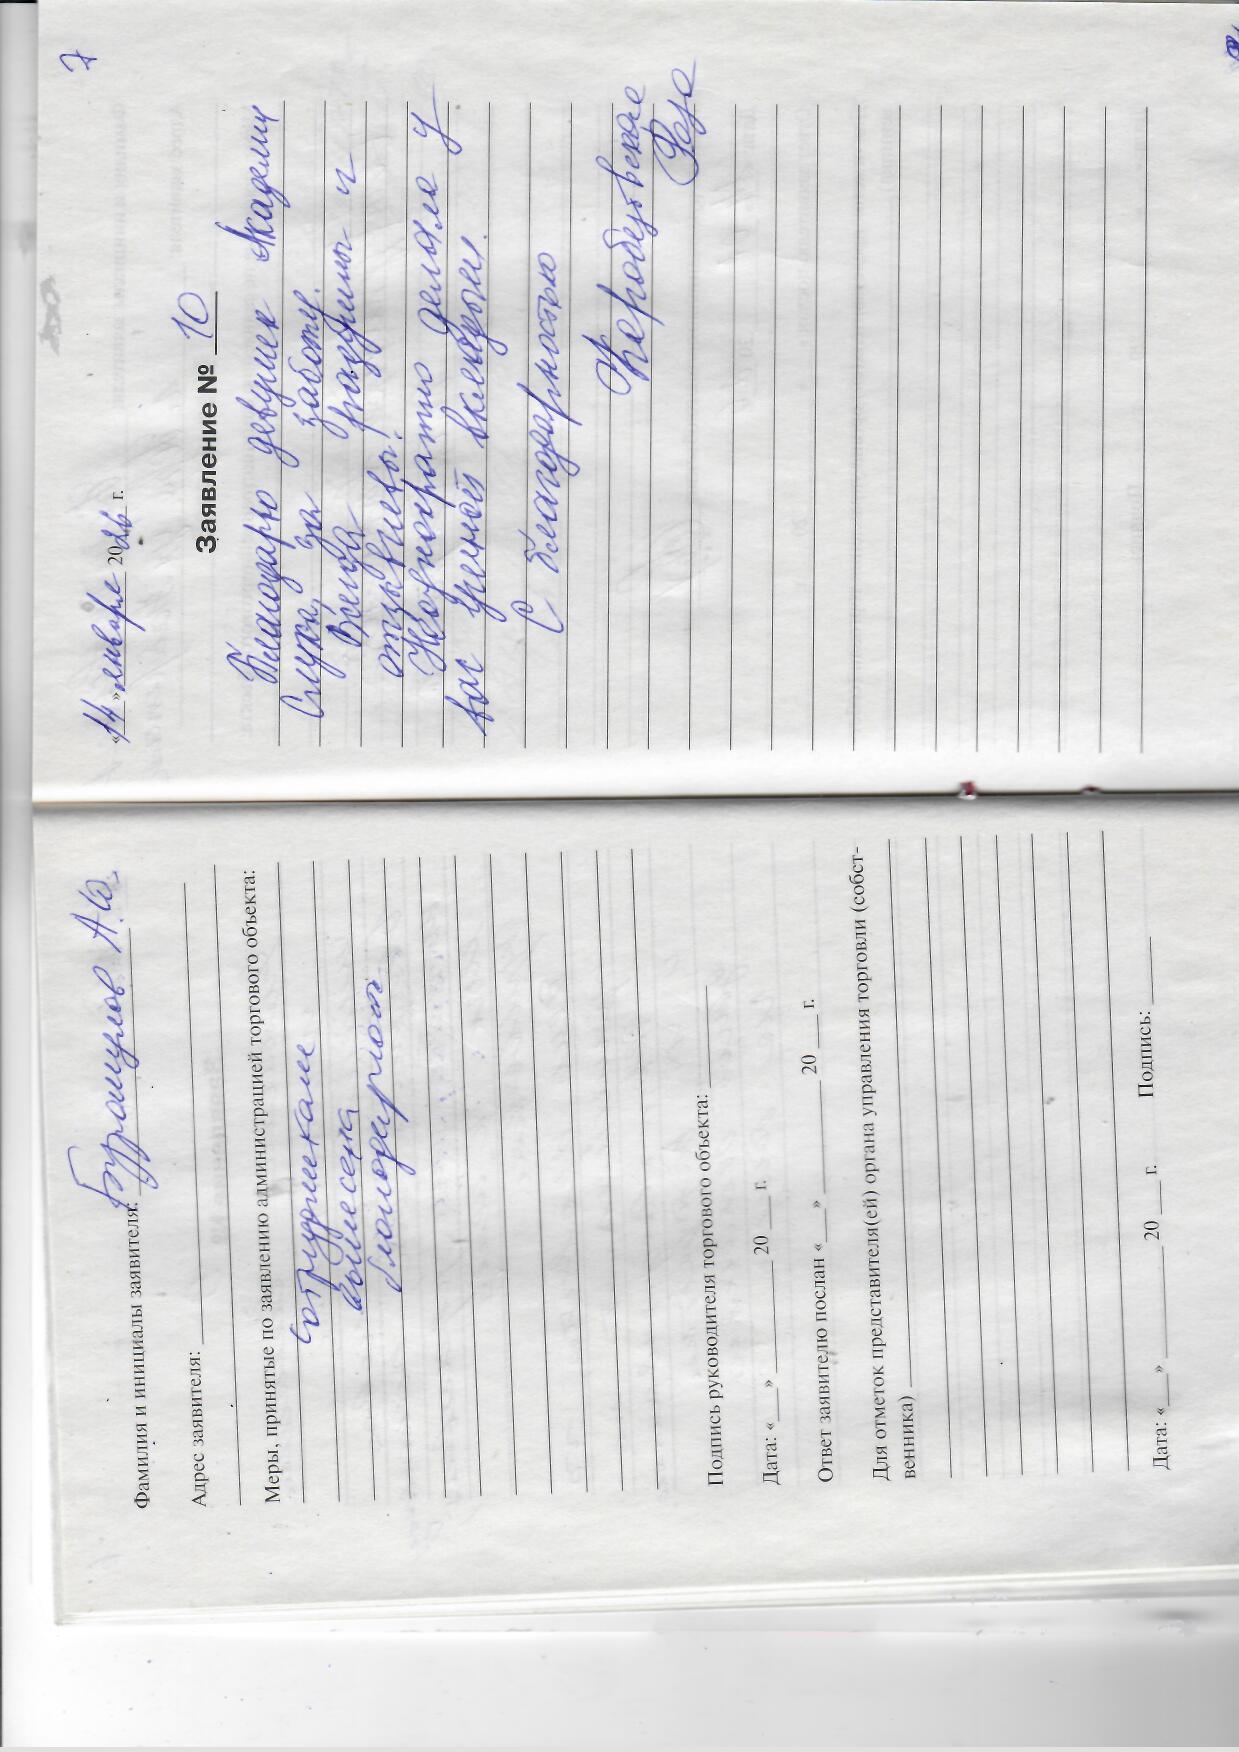 Фамилия и инициалы заявителя: Бурангулов А.Ю.
Адрес заявителя:
Меры, принятые по заявлению администрацией торгового объекта:
сотрудникам
вынесена
благодарность
Подпись руководителя торгового объекта:
Дата: «___» ________ 20 ___ г.
Ответ заявителю послан «___» ________ 20 ___ г.
Для отметок представителя(ей) органа управления торговли (собст-
венника)
Дата: «___» ________ 20 ___ г. Подпись:
7
«14» января 2026 г.
Заявление № 10
Благодарю девушек Академии
Слуха, за заботу.
Всегда радушны и
отзывчевы!
Неоднократно делала у
вас ушной вкладыш.
С благодарностью
Роза